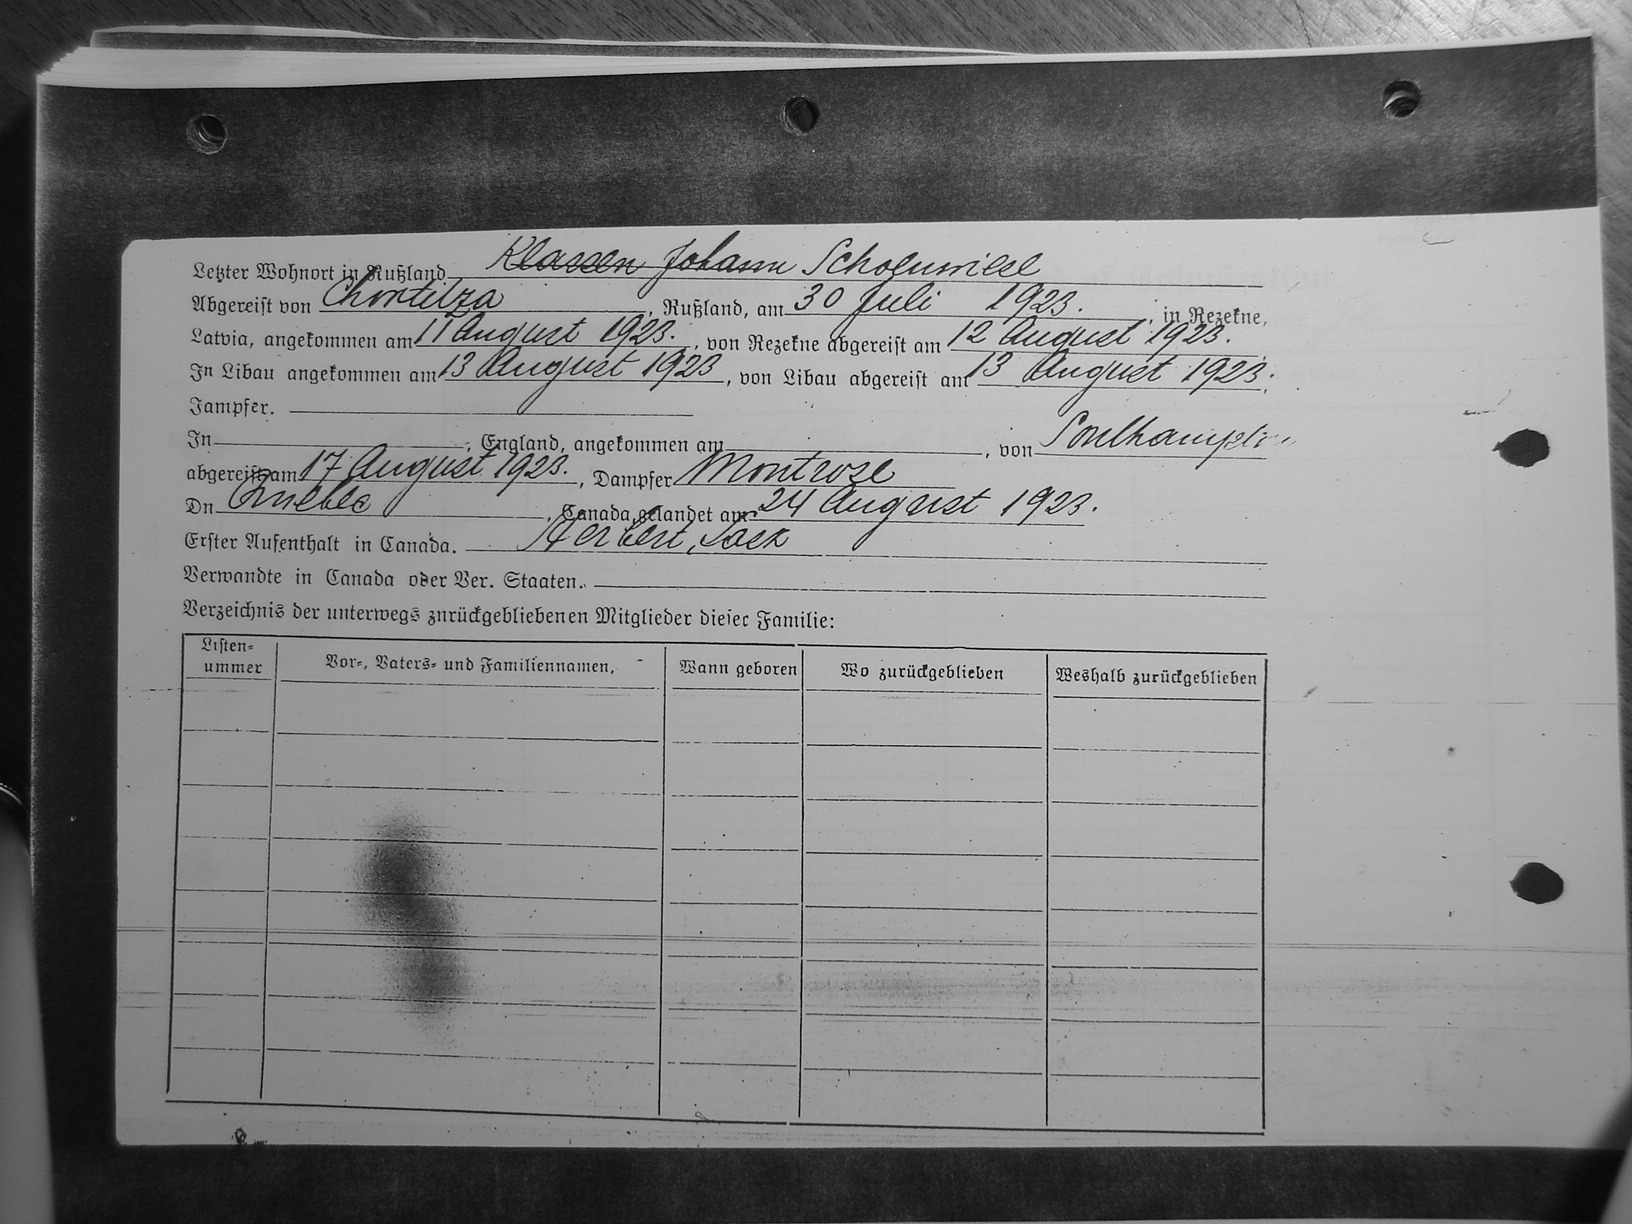 Letzter Wohnort in Rußland Klassen Johann Schoenwiese
Abgereist von Chortitza, Rußland, am 30 Juli 1923. , in Rezekne,
Latvia, angekommen am 11 August 1923. , von Rezekne abgereist am 12 August 1923.
In Libau angekommen am 13 August 1923, von Libau abgereist am 13 August 1923.
Jampfer.
In , England, angekommen am , von Southampton
abgereist am 17 August 1923. , Dampfer Montrose
Dn Quebec , Canada, gelandet am 24 August 1923.
Erster Aufenthalt in Canada. Herbert, Sask
Verwandte in Canada oder Ver. Staaten.
Verzeichnis der unterwegs zurückgebliebenen Mitglieder dieser Familie:
Listen=
ummer
Vor=, Vaters= und Familiennamen,
Wann geboren
Wo zurückgeblieben
Weshalb zurückgeblieben